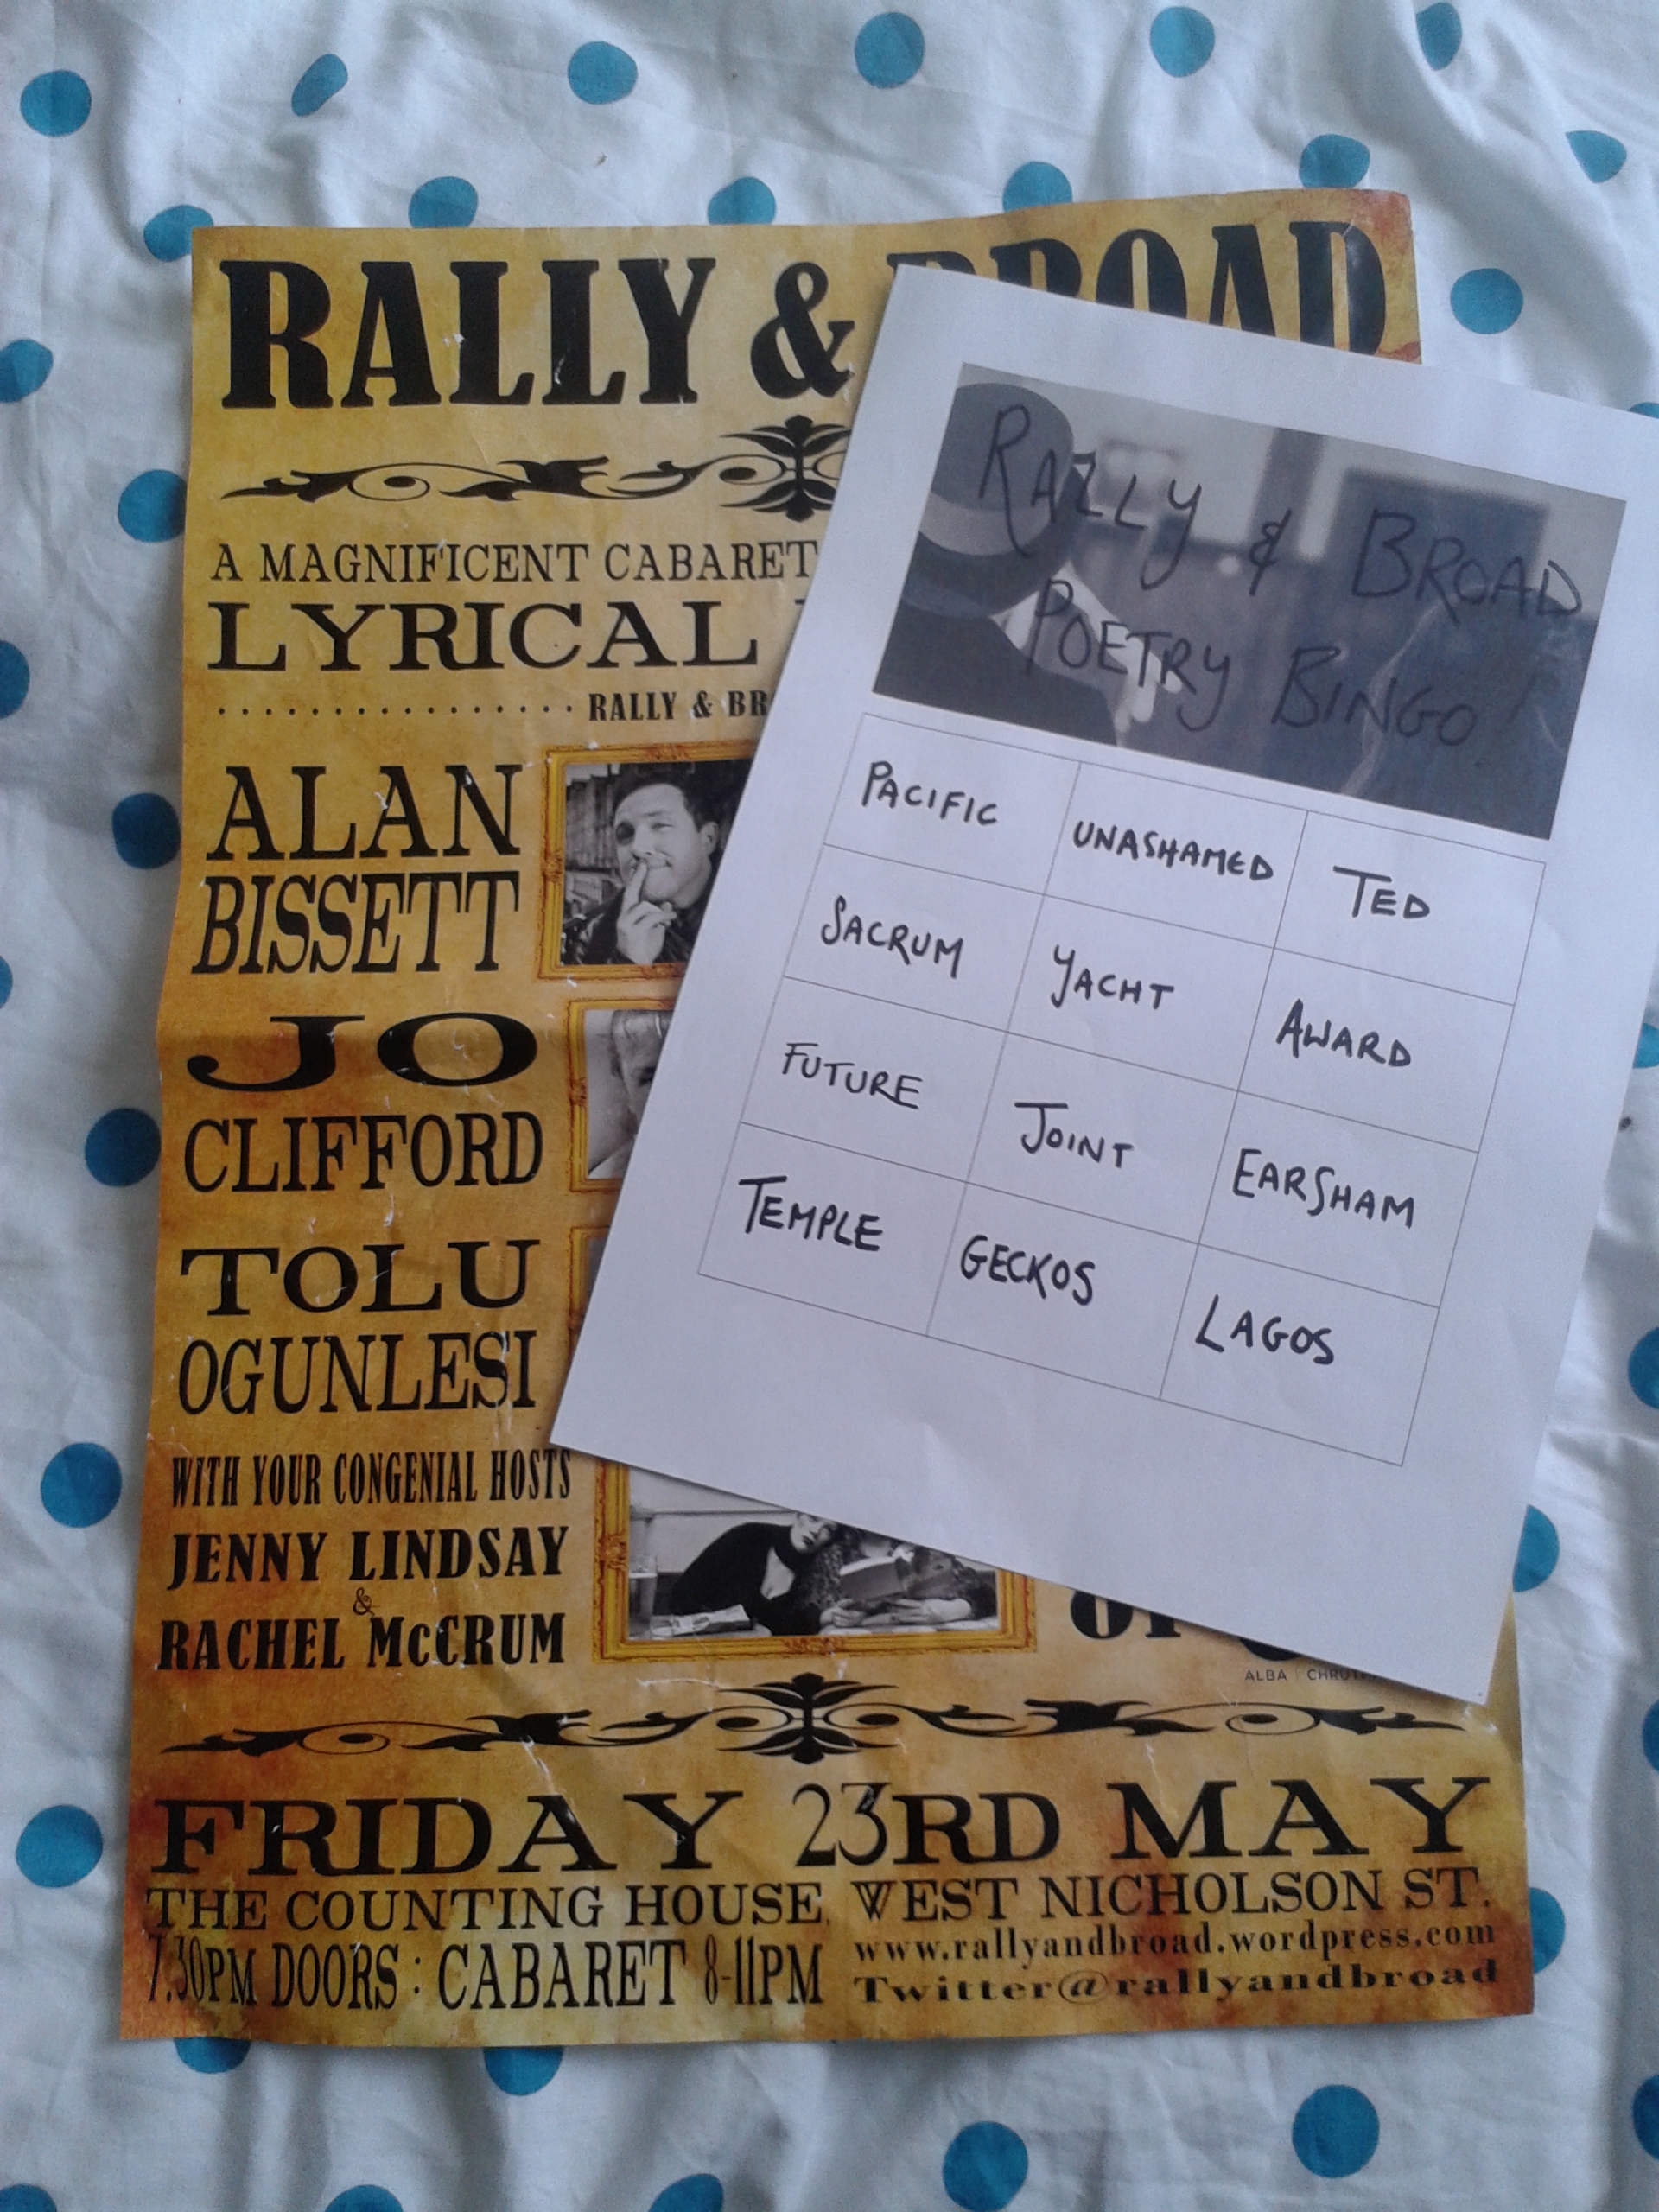 RALLY & BROAD
A MAGNIFICENT CABARET
LYRICAL
RALLY & BR
ALAN
BISSETT
JO
CLIFFORD
TOLU
OGUNLESI
WITH YOUR CONGENIAL HOSTS
JENNY LINDSAY
&
RACHEL McCRUM
ALBA | CHRUTH
FRIDAY 23RD MAY
THE COUNTING HOUSE, WEST NICHOLSON ST.
7.30PM DOORS : CABARET 8-11PM
www.rallyandbroad.wordpress.com
Twitter@rallyandbroad
RALLY & BROAD
POETRY BINGO!
PACIFIC UNASHAMED TED
SACRUM YACHT AWARD
FUTURE JOINT EARSHAM
TEMPLE GECKOS LAGOS